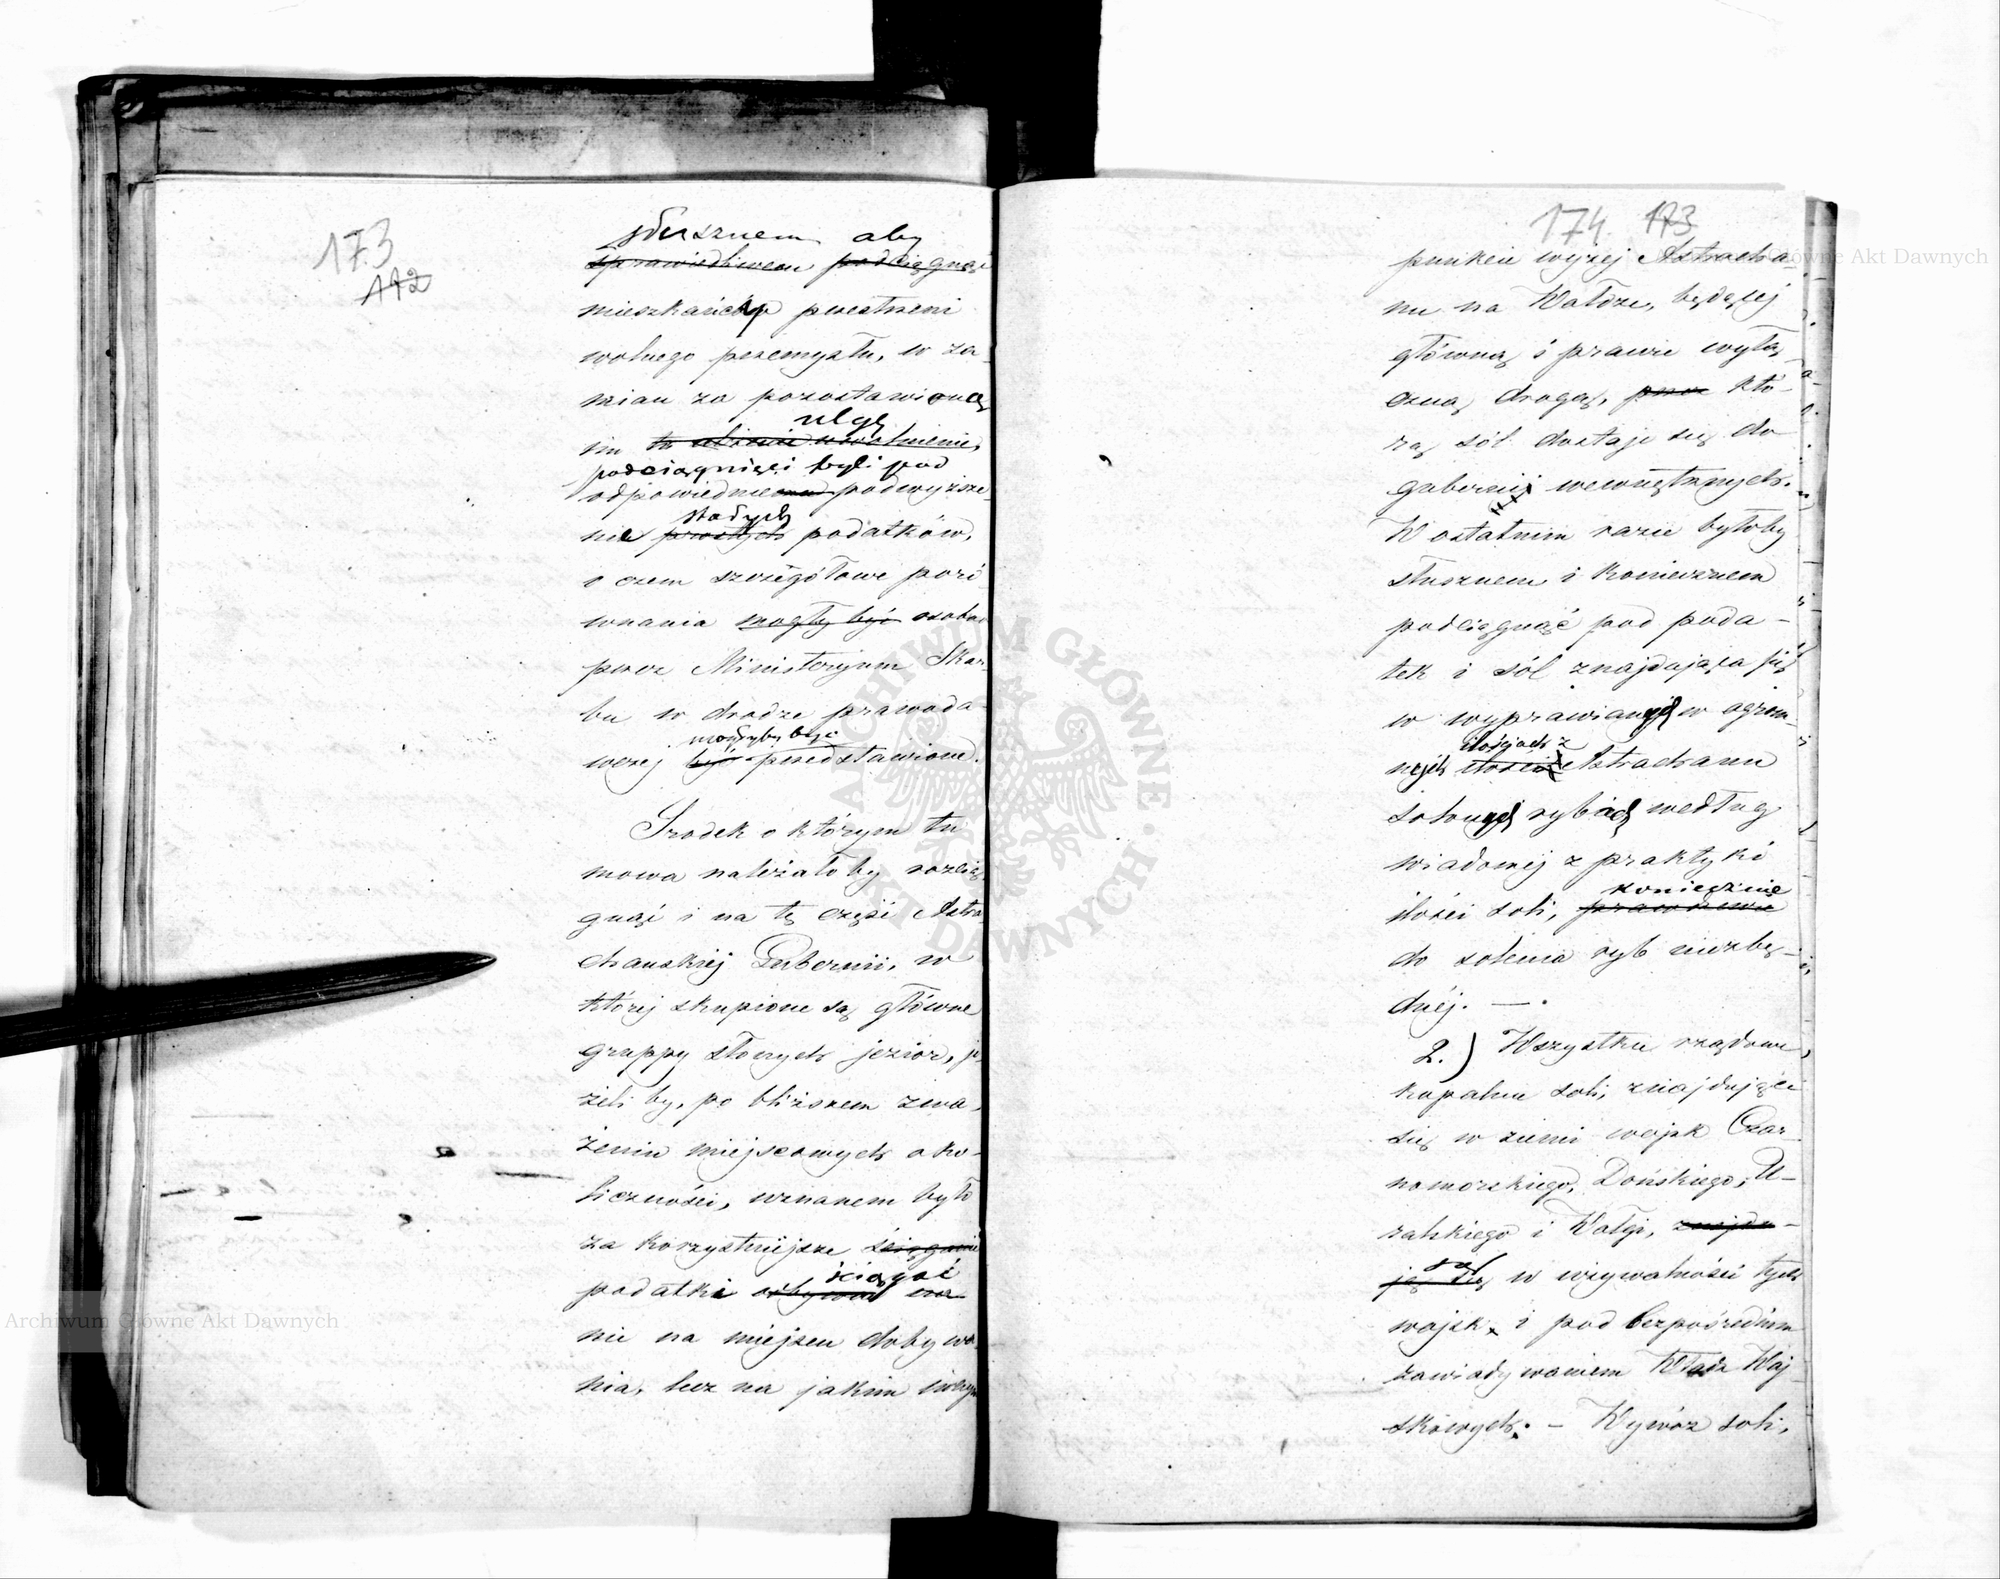 173
172
słusznem aby
sprawiedliwem podciągnąć
mieszkańcy przestrzeni
wolnego przemysłu, w za-
mian za pozostawioną
ulgę
im uwolnienie,
podciągnięci byli pod
odpowiednie podwyższe-
stałych
nie prostych podatków,
o czem szczegółowe poró
wnania mogły być osobno
przez Ministeryum Skar-
bu w drodze prawoda-
mogłyby być
wczej być przedstawione.
Środek o którym tu
mowa należałoby rozcią
gnąć i na tę część Astra
chańskiej Gubernii, w
której skupione są główne
gruppy słonych jezior, je
żeli by, po bliższem zwa-
żeniu miejscowych oko-
liczności, uznanem było
za korzystniejsze ściąganie
ściągać
podatki
nie na miejscu dobywa
nia, lecz na jakim innym
174. 173
punkcie wyżej Astracha-
nu na Wołdze, będącej
główną i prawie wyłą-
czną drogą, przez któ-
rą sól dostaje się do
gubernij wewnętrznych.
W ostatnim razie byłoby
słusznem i koniecznem
podciągnąć pod poda-
tek i sól znajdującą się
w wyprawianych w ogrom-
ilościach z
nych ilości Astrachanu
solonych rybach według
wiadomej z praktyki
koniecznie
ilości soli,
do solenia ryb niezbę-
dnéj. —.
2.) Wszystkie rządowe,
kopalnie soli, znajdujące
się w ziemi wojsk Czar
nomorskiego, Dońskiego, U-
ralskiego i Wołgi, znajdu-
są
ją się w używalności tych
wojsk, i pod bezpośrednim
zawiadywaniem Władz Woj
skowych. – Wywóz soli,
ARCHIWUM GŁÓWNE AKT DAWNYCH
Archiwum Główne Akt Dawnych
Archiwum Główne Akt Dawnych